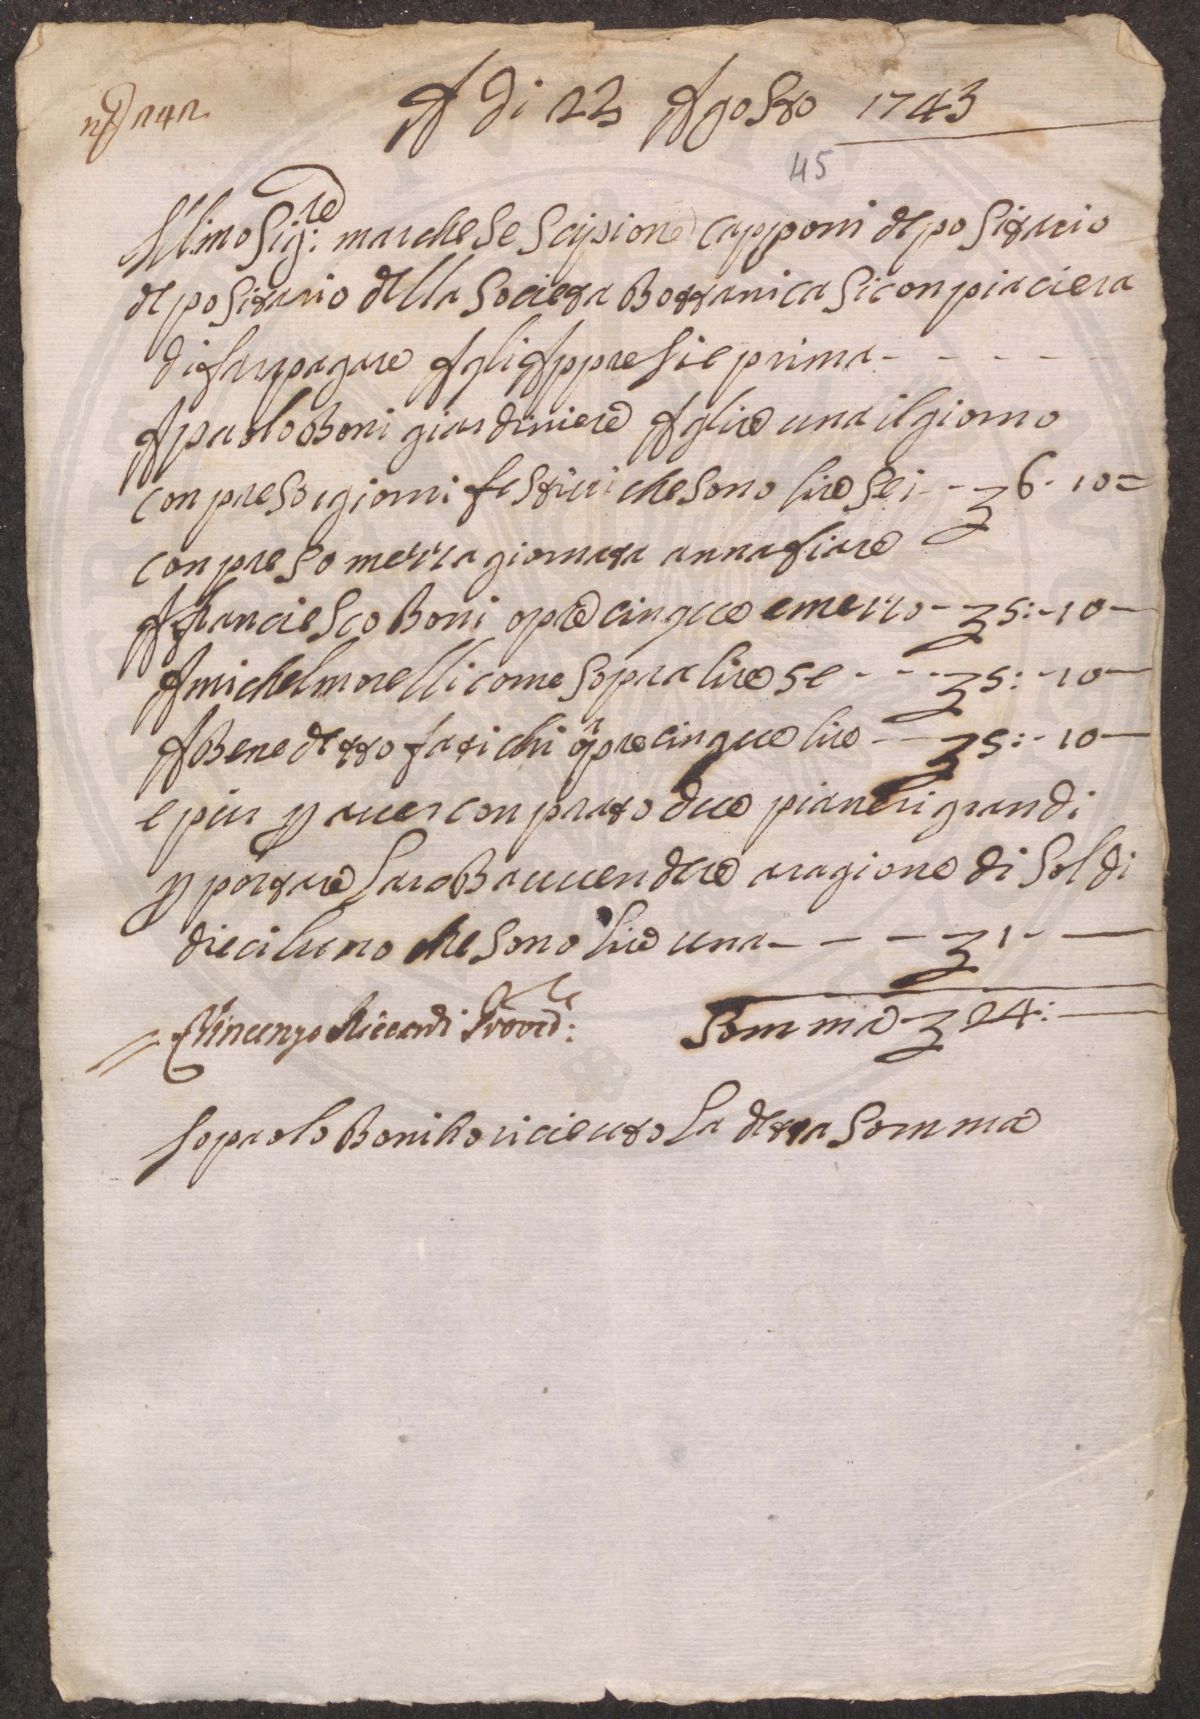 n° 242
A di 23 Agosto 1743
45
Ill.mo Sig:re marchese Scipione capponi depositario
depositario della Societa Bottanica si conpiaciera
di far pagare Agli Appresi e prima - - - - -
A paolo Boni giardiniere A lire una il giorno
conpreso i giorni festivi che sono lire sei - - 6 - 10 =
conpreso mezza giornata annafiare
A franciesco Boni opre cinque e mezzo - 5: - 10 -
A michel morelli come sopra lire se - - - 5: - 10 -
A Benedetto fatichi opre cinque lire - 5: - 10 -
e piu p aver conprato due pianeri grandi
p portare la roba a vendere a ragione di Soldi
dieci luno che sono lire una - - - - 1 - -
Vincenzo Riccardi Provvd:re
Somma 24: -
Io paolo Boni ho riceuto la detta Somma